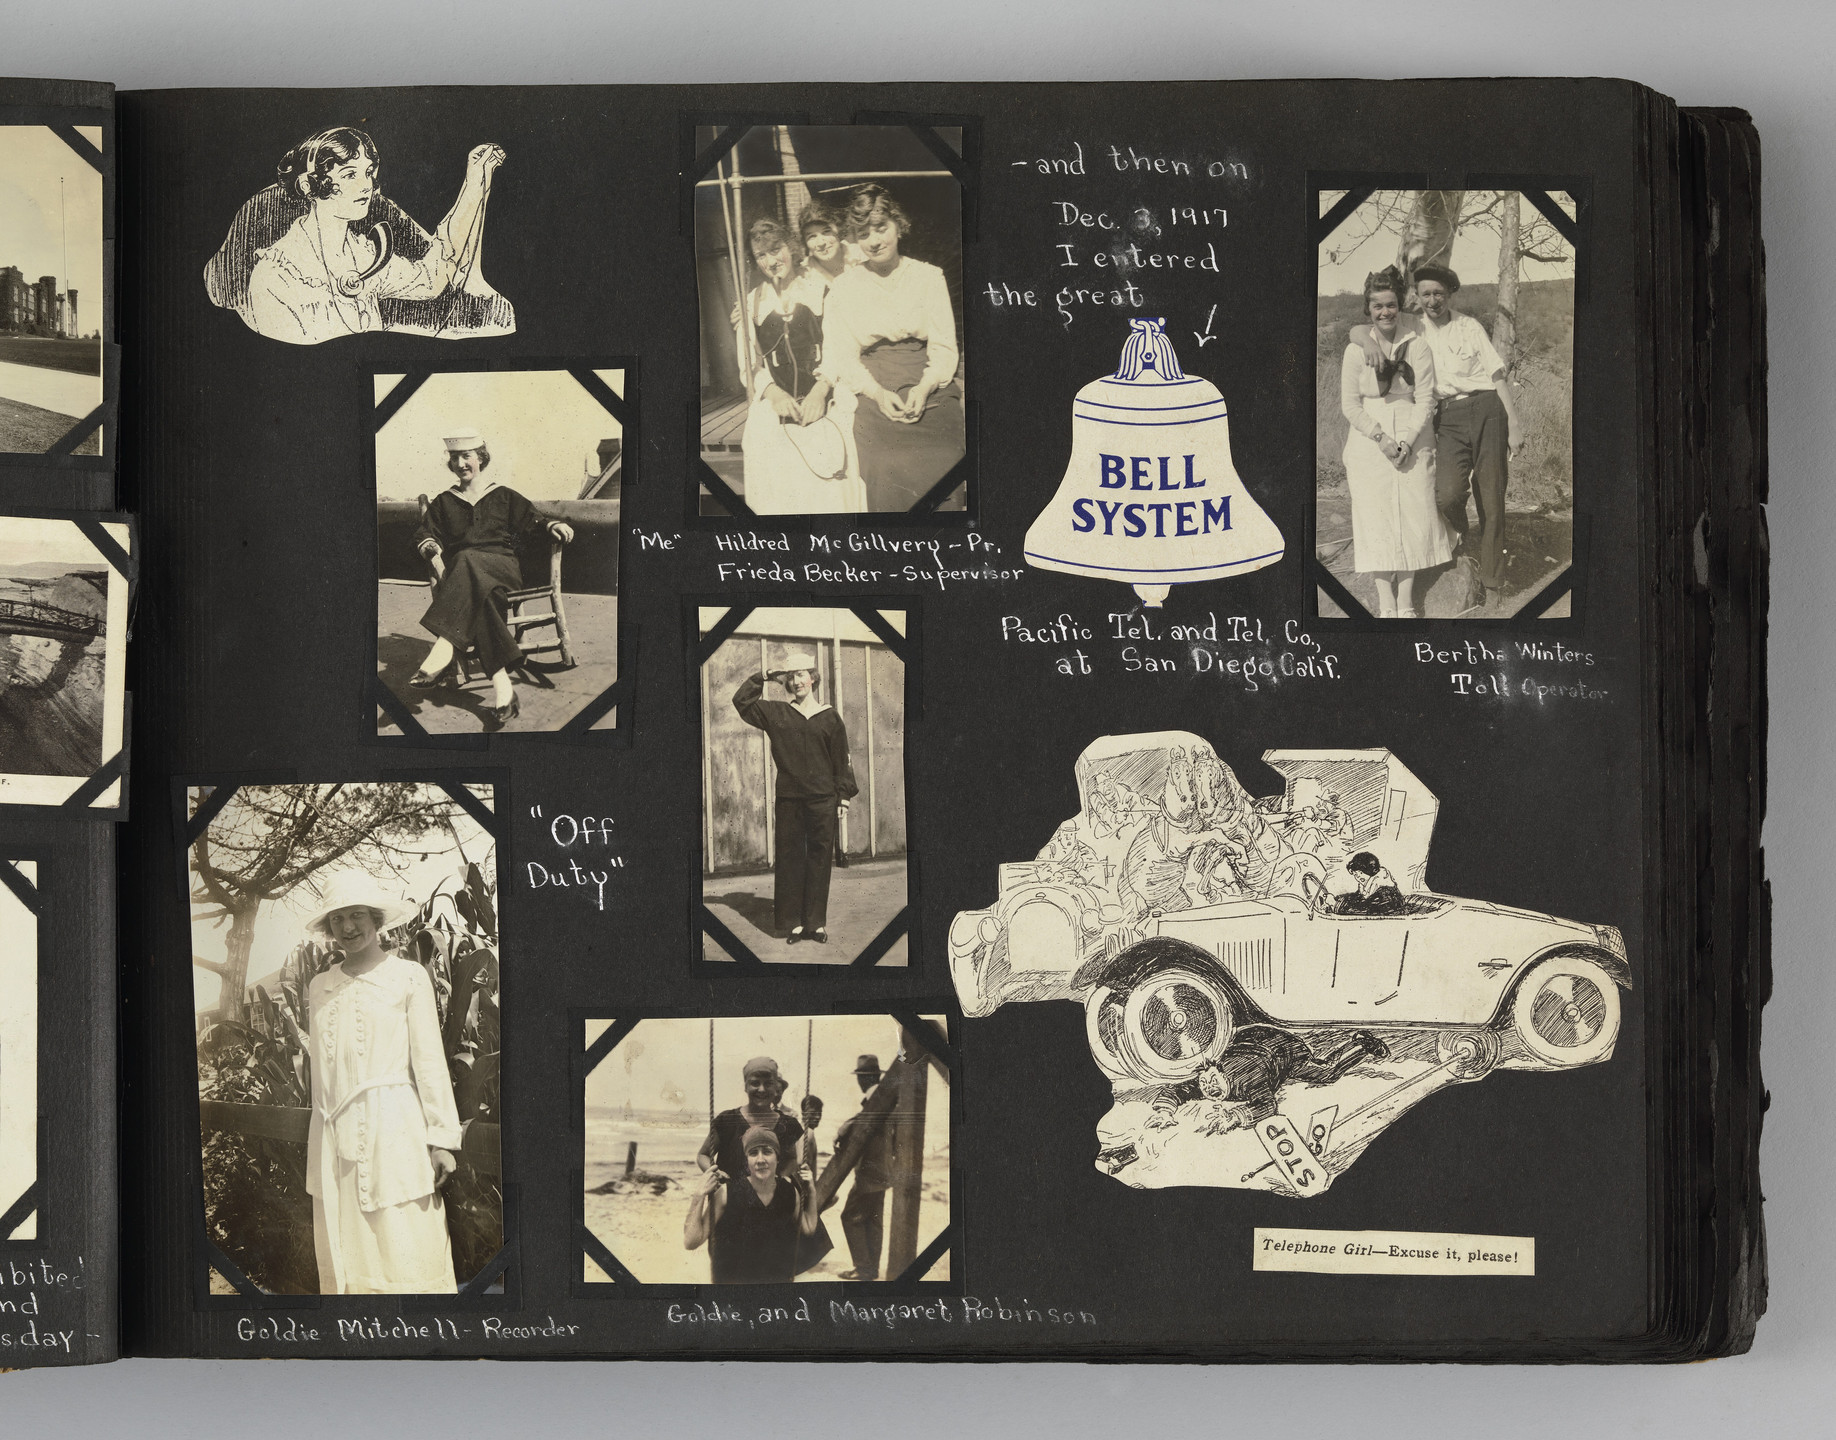 -and then on
Dec. 3, 1917
I entered
the great
BELL
SYSTEM
Pacific Tel. and Tel. Co.,
at San Diego, Calif.
"Me" Hildred McGillvery - Pr.
Frieda Becker - Supervisor
Bertha Winters
Toll Operator.
"Off
Duty"
STOP
GO
Telephone Girl—Excuse it, please!
Goldie Mitchell - Recorder
Goldie, and Margaret Robinson
F.
nd